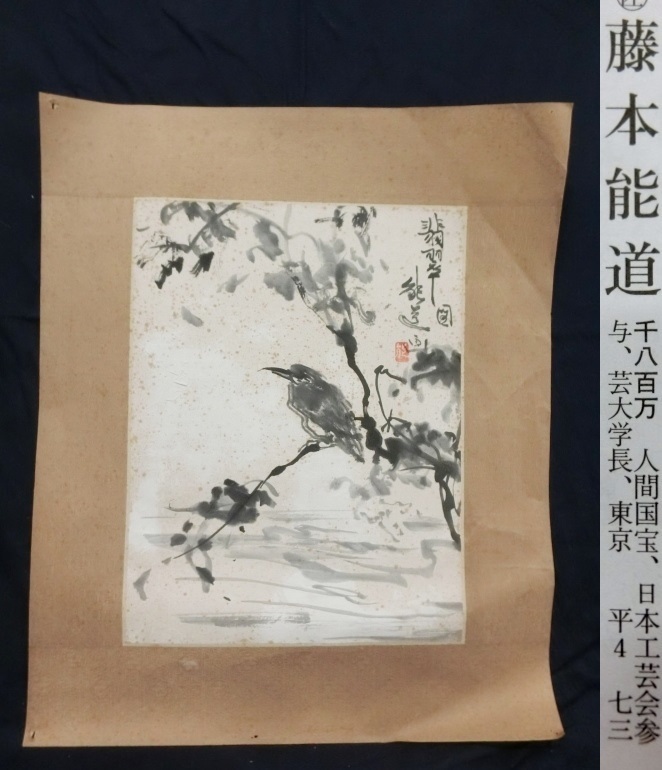 翡翠図
能道画
藤本能道
千八百万 人間国宝、日本工芸会参
与、芸大学長、東京 平4 七三